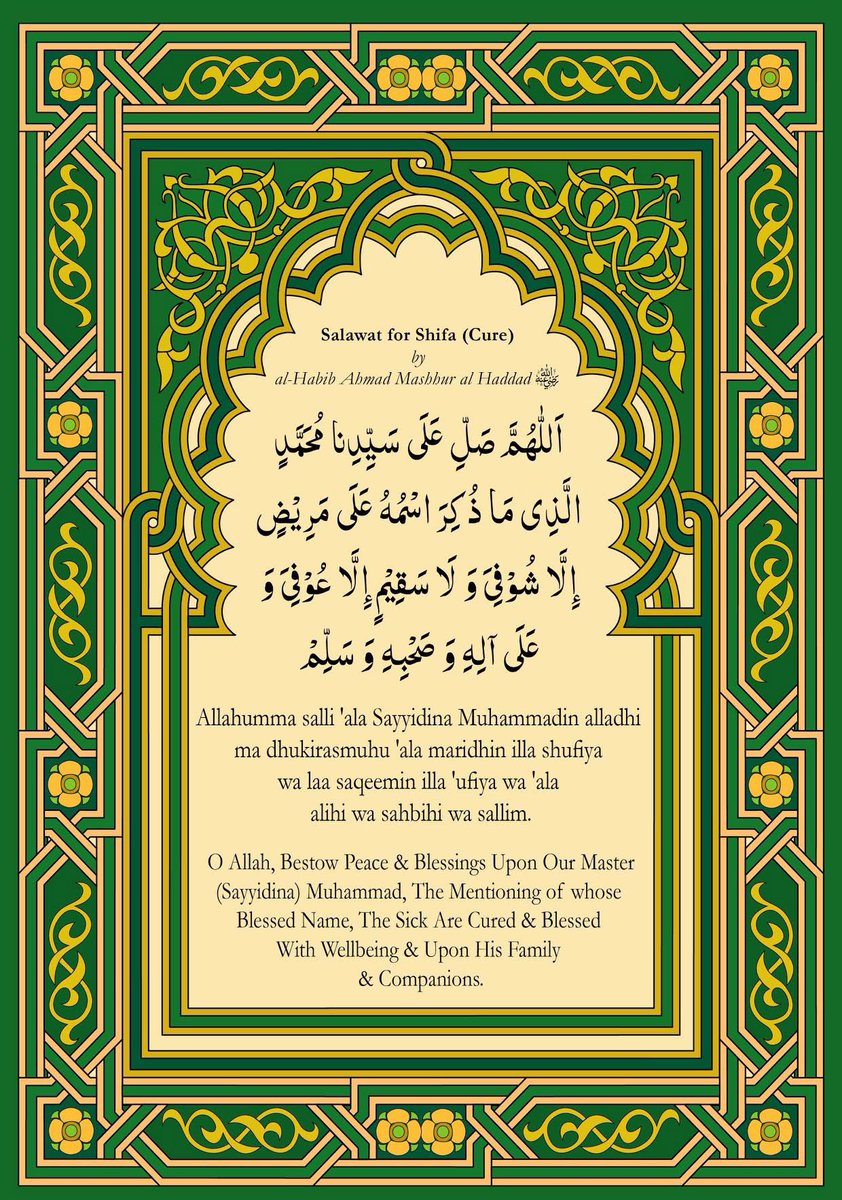 Salawat for Shifa (Cure)
by
al-Habib Ahmad Mashhur al Haddad رضي الله عنه
اَللّٰهُمَّ صَلِّ عَلَى سَيِّدِنَا مُحَمَّدٍ
الَّذِى مَا ذُكِرَ اسْمُهُ عَلَى مَرِيْضٍ
إِلَّا شُوْفِيَ وَ لَا سَقِيْمٍ إِلَّا عُوْفِيَ وَ
عَلَى آلِهِ وَ صَحْبِهِ وَ سَلِّمْ
Allahumma salli 'ala Sayyidina Muhammadin alladhi
ma dhukirasmuhu 'ala maridhin illa shufiya
wa laa saqeemin illa 'ufiya wa 'ala
alihi wa sahbihi wa sallim.
O Allah, Bestow Peace & Blessings Upon Our Master
(Sayyidina) Muhammad, The Mentioning of whose
Blessed Name, The Sick Are Cured & Blessed
With Wellbeing & Upon His Family
& Companions.